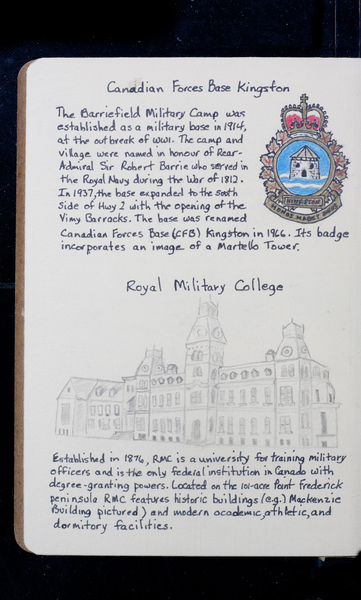 Canadian Forces Base Kingston
The Barriefield Military Camp was
established as a military base in 1914,
at the outbreak of WWI. The camp and
village were named in honour of Rear-
Admiral Sir Robert Barrie who served in
the Royal Navy during the War of 1812.
In 1937, the base expanded to the south
side of Hwy 2 with the opening of the
Vimy Barracks. The base was renamed
Canadian Forces Base (CFB) Kingston in 1966. Its badge
incorporates an image of a Martello Tower.
KINGSTON
Royal Military College
Established in 1876, RMC is a university for training military
officers and is the only federal institution in Canada with
degree-granting powers. Located on the 101-acre Point Frederick
peninsula RMC features historic buildings (e.g.) Mackenzie
Building pictured) and modern academic, athletic, and
dormitory facilities.